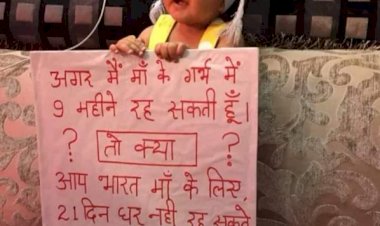 अगर मैं माँ के गर्भ में
9 महीने रह सकती हूँ।
? तो क्या ?
आप भारत माँ के लिए
21 दिन घर नही रह सकते